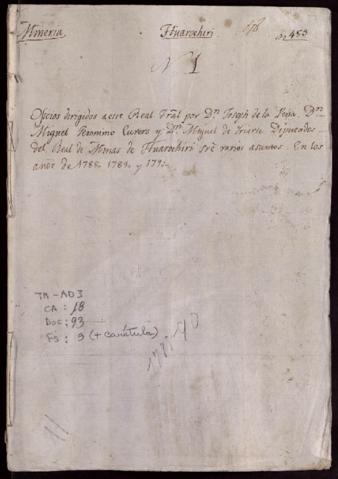 Mineria Huarochiri
N 1
Oficios dirigidos a este Real Tral por Dn. Joseph de la Peña, Dn.
Miguel Geronimo Cavero y Dn. Miguel de Iriarte Diputados
del Real de Minas de Huarochiri sre varios asuntos. En los
años de 1788 1789 y 179
TM-AD3
CA: 18
Doc: 93
Fs: 9 (+ carátula)